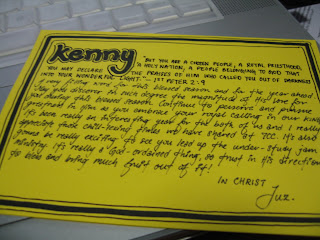 kenny
But you are a chosen people, a royal priesthood,
a holy nation, a people belonging to God that
you may declare the praises of him who called you out of darkness
into your wonderful light." – 1st Peter 2:9
A very fitting word for this blessed season and for the year ahead
May you discover a rich degree of the magnitude of His love for
you during this blessed season. Continue to persevere and pursue
greatness in Him as you embrace your royal calling in our King
It's been really an interesting year for the both of us and I really
appreciate those cell-leading times we have shared at TCC. It's also
gonna be really exciting to see you lead up the under-study jam
ministry. It's really a God-ordained thing, so trust in His direction
for and bring much fruit out of it!
IN CHRIST
Juz.